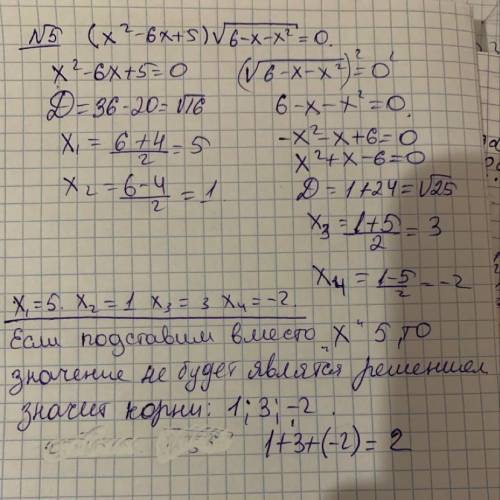 №5 (x²-6x+5)√(6-x-x²)=0.
x²-6x+5=0 (√(6-x-x²))²=0²
D=36-20=√16 6-x-x²=0.
x₁=(6+4)/2=5 -x²-x+6=0
x²+x-6=0
x₂=(6-4)/2=1. D=1+24=√25
x₃=(1+5)/2=3
x₄=(1-5)/2=-2
x₁=5. x₂=1 x₃=3 x₄=-2.
Если подставим вместо "x" 5, то
значение не будет являтся решением
значит корни: 1; 3; -2.
1+3+(-2)=2